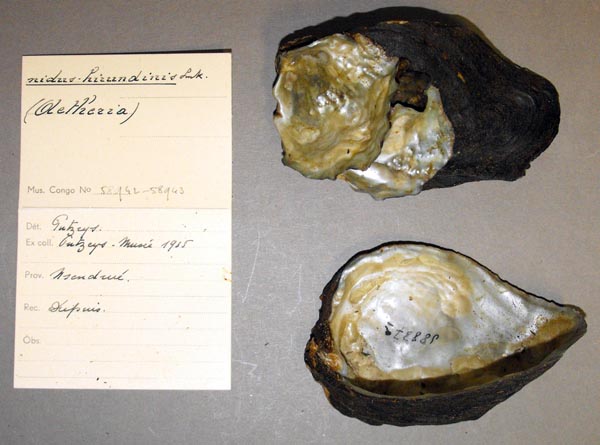 nidus-hirundinis Lmk.
(Aetheria)
Mus. Congo No 58942-58943
Dét. Putzeys.
Ex coll. Putzeys - Musée 1955
Prov.
Rec. Dupuis.
Obs.